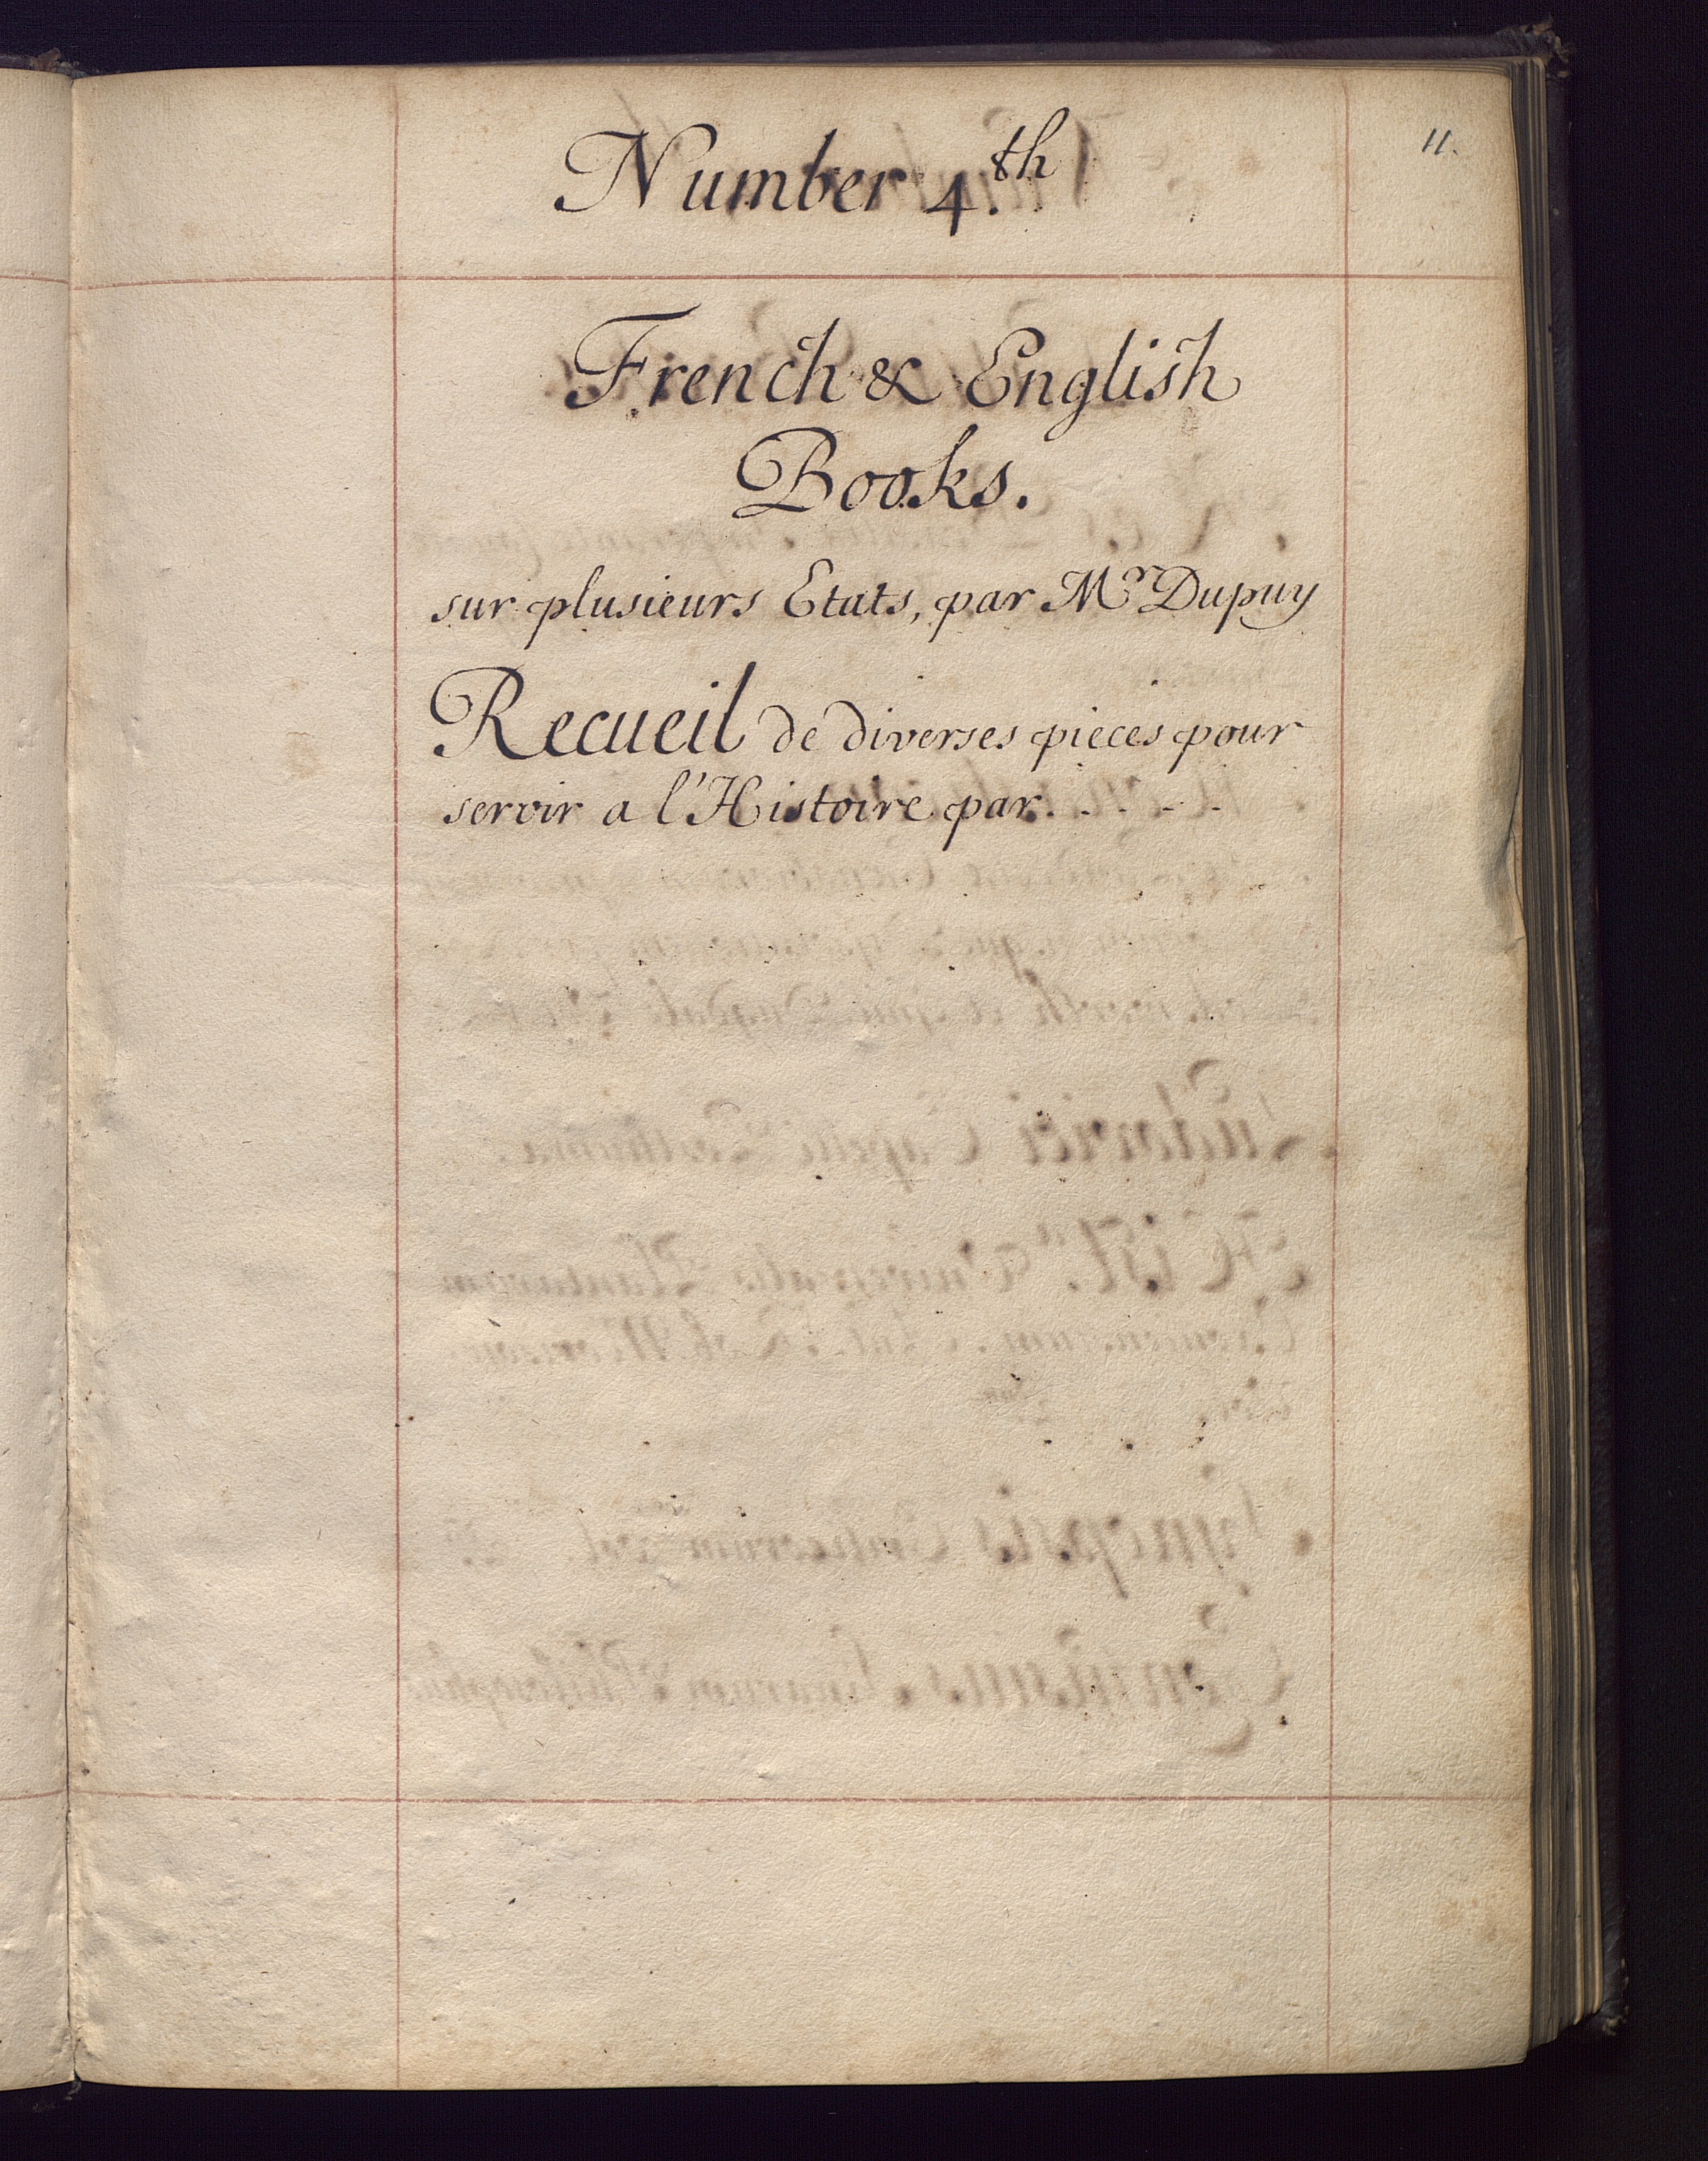 11.
Number 4.th
French & English
Books.
sur plusieurs Etats, par Mr Dupuy
Recueil de diverses pieces pour
servir a l'Histoire par. - - - -